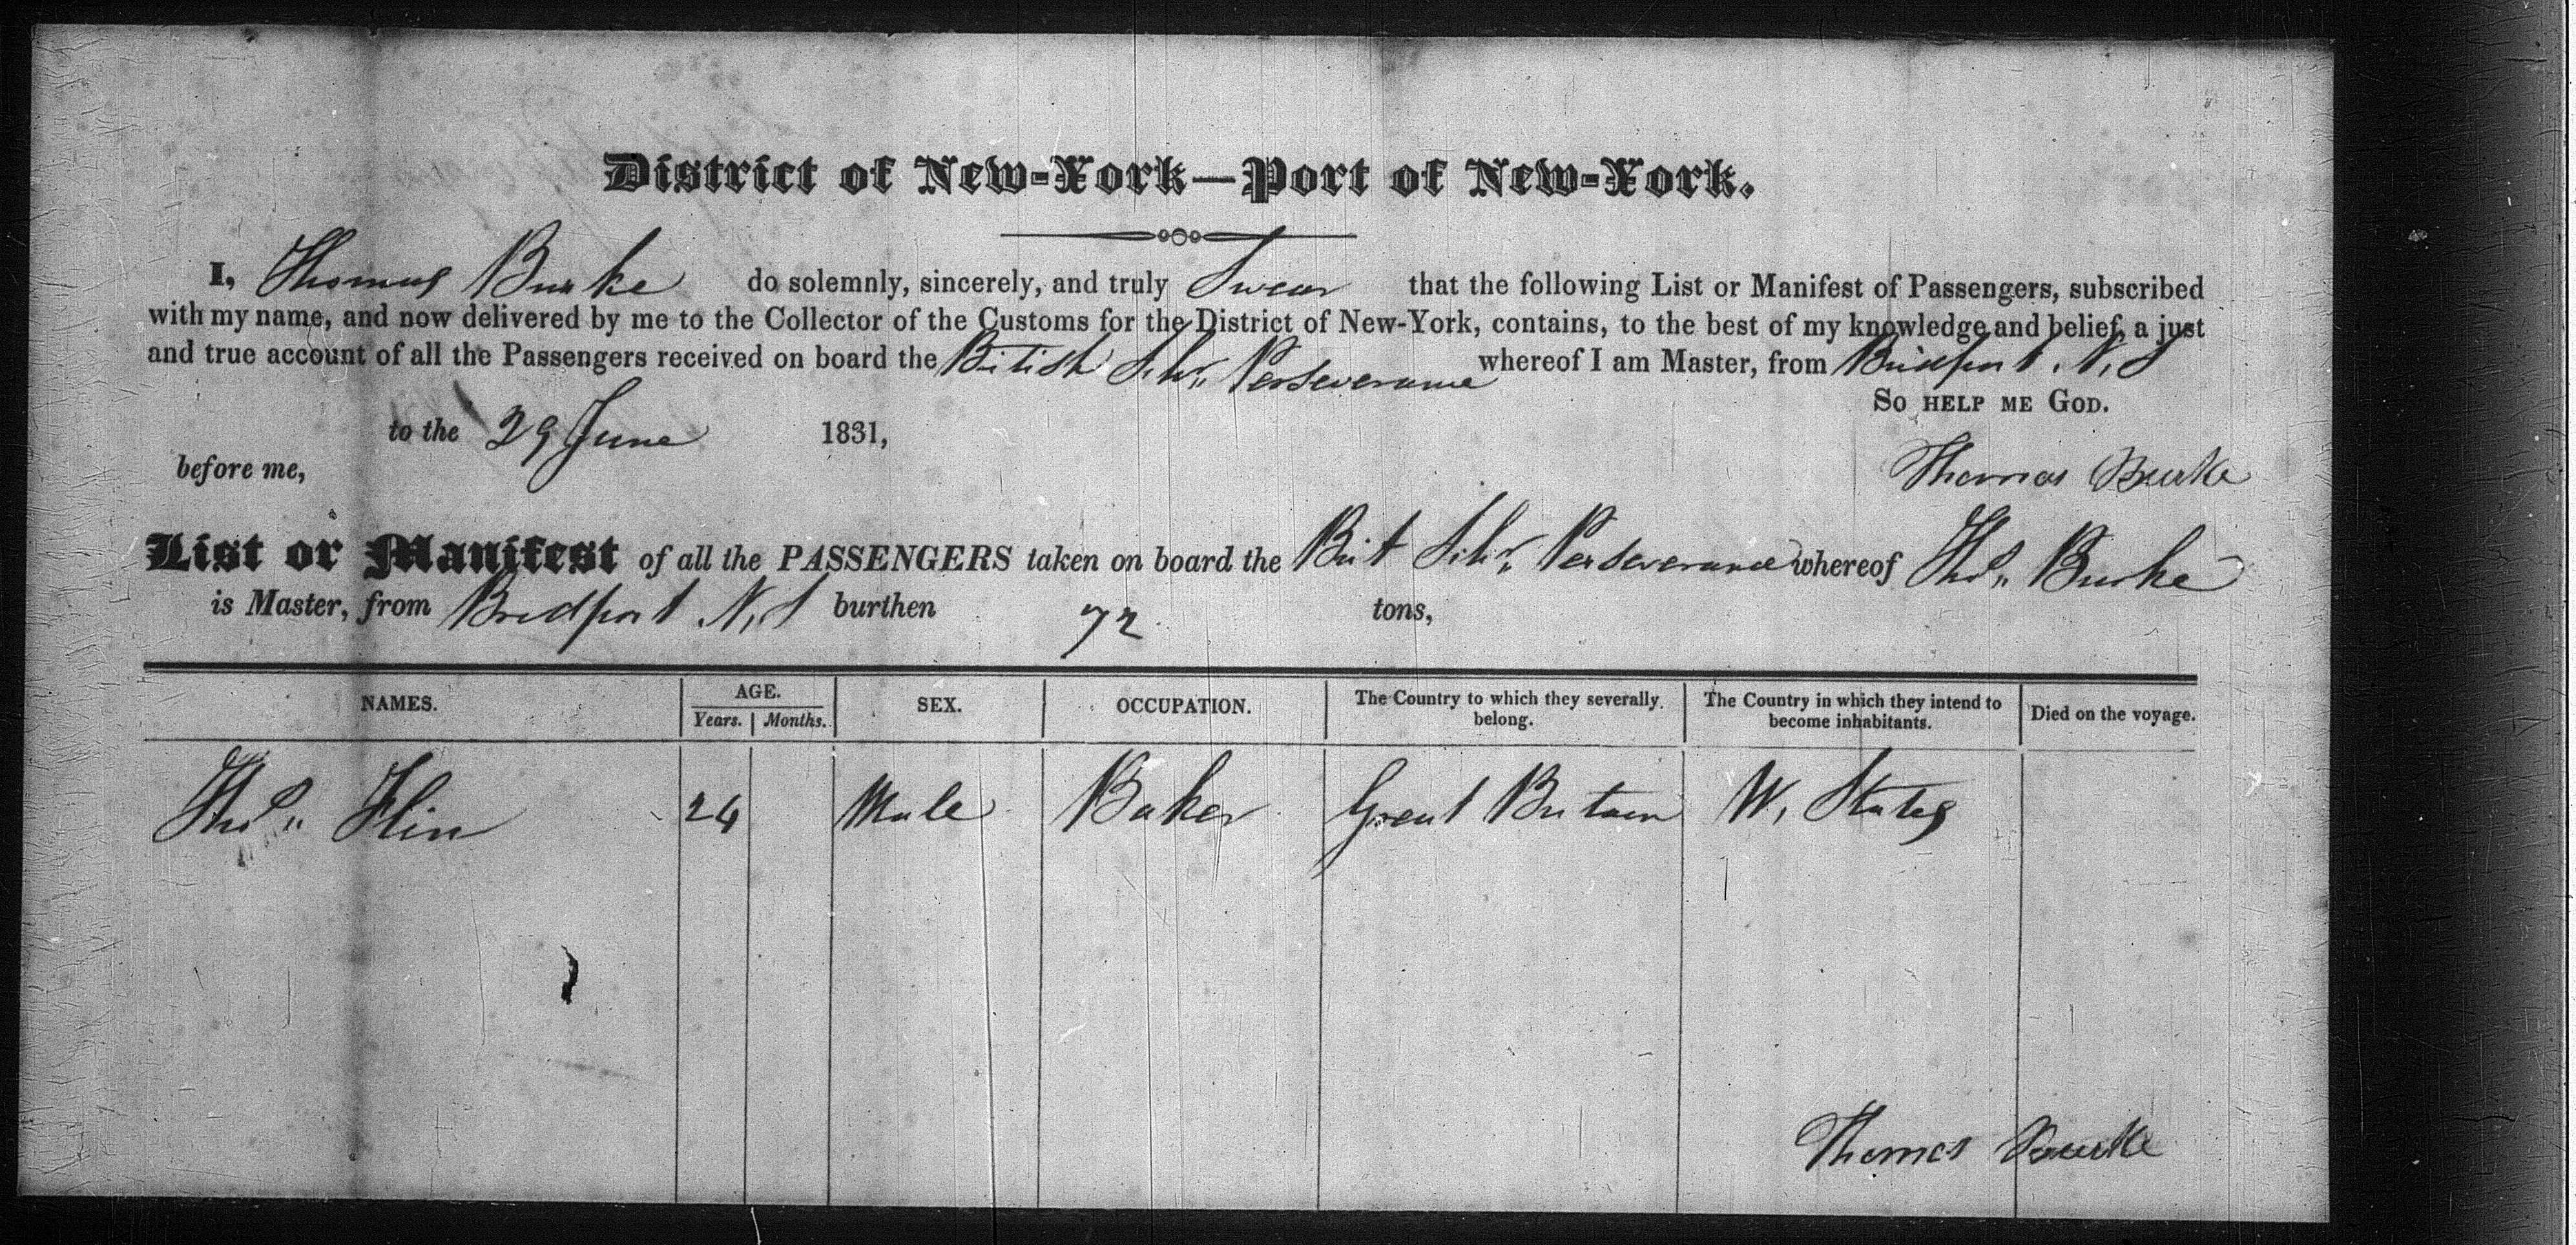 District of New-York—Port of New-York.
I, Thomas Burke do solemnly, sincerely, and truly Swear that the following List or Manifest of Passengers, subscribed
with my name, and now delivered by me to the Collector of the Customs for the District of New-York, contains, to the best of my knowledge and belief, a just
and true account of all the Passengers received on board the British Schr Perseverance whereof I am Master, from Bridport, N, S
So help me God.
to the 29 June 1831,
before me,
Thomas Burke
List or Manifest of all the PASSENGERS taken on board the Brit Schr Perseverance whereof Thos Burke
is Master, from Bridport N, S burthen 72 tons,
NAMES. AGE. SEX. OCCUPATION. The Country to which they severally belong. The Country in which they intend to become inhabitants. Died on the voyage.
Years. Months.
Thos Flin 24 Male Baker Great Britain U, States
Thomas Burke